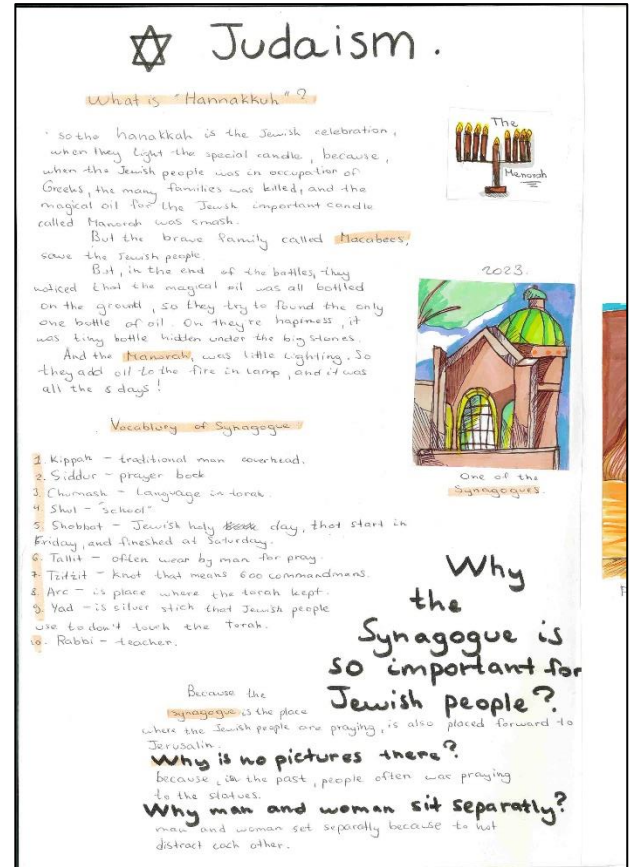 Judaism.
What is "Hannakkuh"?
so the hanakkah is the Jewish celebration,
when they light the special candle, because,
when the Jewish people was in occupation of
Greeks, the many families was killed, and the
magical oil for the Jewish important candle
called Manorah was smash.
But the brave family called Macabees,
save the Jewish people.
But, in the end of the battles, they
noticed that the magical oil was all bottled
on the ground, so they try to found the only
one bottle of oil. On they're hapiness, it
was tiny bottle hidden under the big stones.
And the Manorah, was little lighting. So
they add oil to the fire in lamp, and it was
all the 8 days!
The
Menorah
2023.
One of the
Synagogues.
Vocablury of Synagogue
1. Kippah - traditional man coverhead.
2. Siddur - prayer book
3. Chumash - Language in torah.
4 Shul - "school"
5. Shobbat - Jewish holy day, that start in
Friday, and fineshed at Saturday.
6. Tallit - often wear by man for pray.
7. Tzitzit - knot that means 600 commandmens.
8. Arc - is place where the torah kept.
9. Yad - is silver stick that Jewish people
use to don't touch the Torah.
10. Rabbi - teacher.
Why
the
Synagogue is
so important for
Jewish people?
Because the
synagogue is the place
where the Jewish people are praying, is also placed forward to
Jerusalin.
Why is no pictures there?
because, in the past, people often was praying
to the statues.
Why man and woman sit separatly?
man and woman set separatly because to not
distract each other.